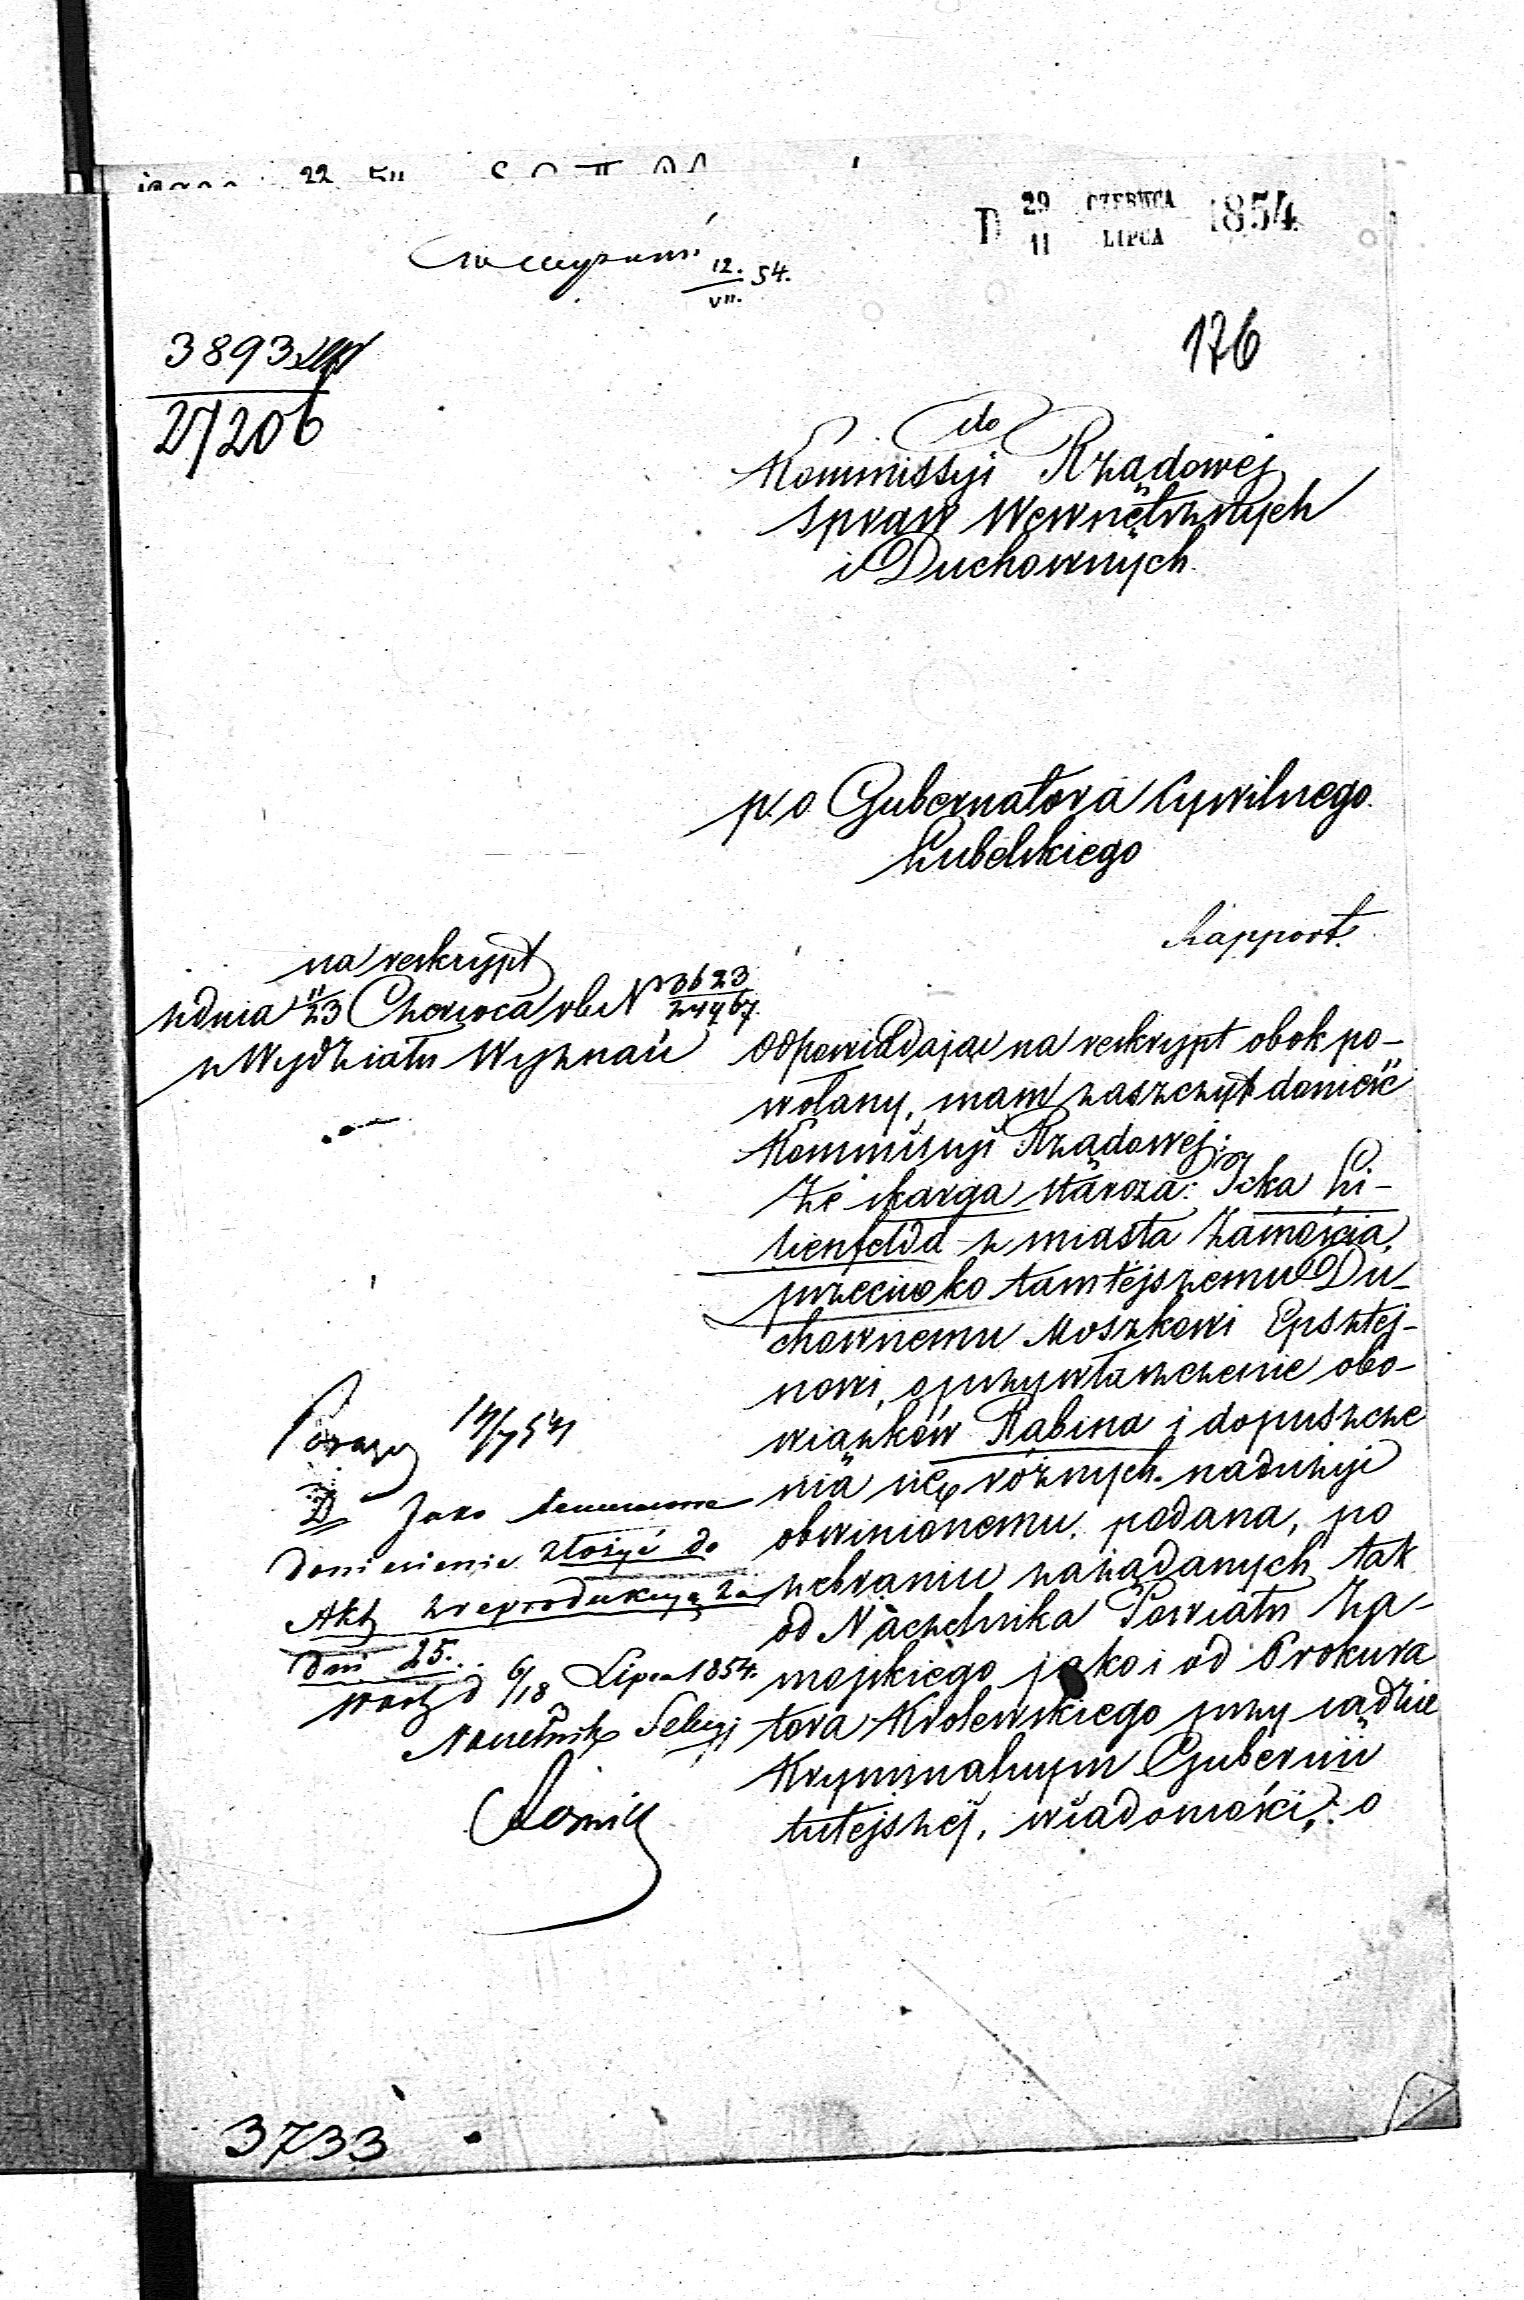 D 29 CZERWCA 1854
11 LIPCA
12. 54.
VII.
3893
27206
176
do
Kommissyi Rządowej
Spraw Wewnętrznych
i Duchownych.
p.o Gubernatora Cywilnego
Lubelskiego
Rapport.
na reskrypt
z dnia 11/23 Czerwca rb. N 3623
24467.
z Wydziału Wyznań
Odpowiadając na reskrypt obok po-
wołany, mam zaszczyt donieść
Kommissyi Rządowej:
że skarga staroza: Icka Li-
lienfelda z miasta Zamościa,
przeciwko tamtejszemu Du-
chownemu Moszkowi Epsztej-
nowi, o przywłaszczenie obo-
wiązków Rabina i dopuszcze
nia się różnych nadużyi
obwinionemu, podana, po
zebraniu zażądanych tak
od Naczelnika Powiatu Za-
mojskiego jako i od Prokura
tora Królewskiego przy sądzie
Kryminalnym Gubernii
tutejszej, wiadomości, o
D Jako
doniesienie złożyć do
Akt z reprodukcyą za
dni 25.
d 6/18 Lipca 1854.
Naczelnik Sekcyi
3733